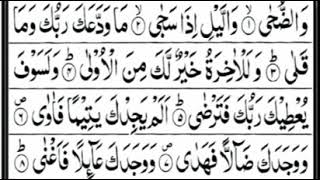 وَالضُّحٰى ۙ﴿۱﴾ وَالَّيْلِ اِذَا سَجٰى ۙ﴿۲﴾ مَا وَدَّعَكَ رَبُّكَ وَمَا
قَلٰى ؕ﴿۳﴾ وَلَلْاٰخِرَةُ خَيْرٌ لَّكَ مِنَ الْاُوْلٰى ؕ﴿۴﴾ وَلَسَوْفَ
يُعْطِيْكَ رَبُّكَ فَتَرْضٰى ؕ﴿۵﴾ اَلَمْ يَجِدْكَ يَتِيْمًا فَاٰوٰى ۪﴿۶﴾
وَوَجَدَكَ ضَآلًّا فَهَدٰى ۪﴿۷﴾ وَوَجَدَكَ عَآئِلًا فَاَغْنٰى ؕ﴿۸﴾